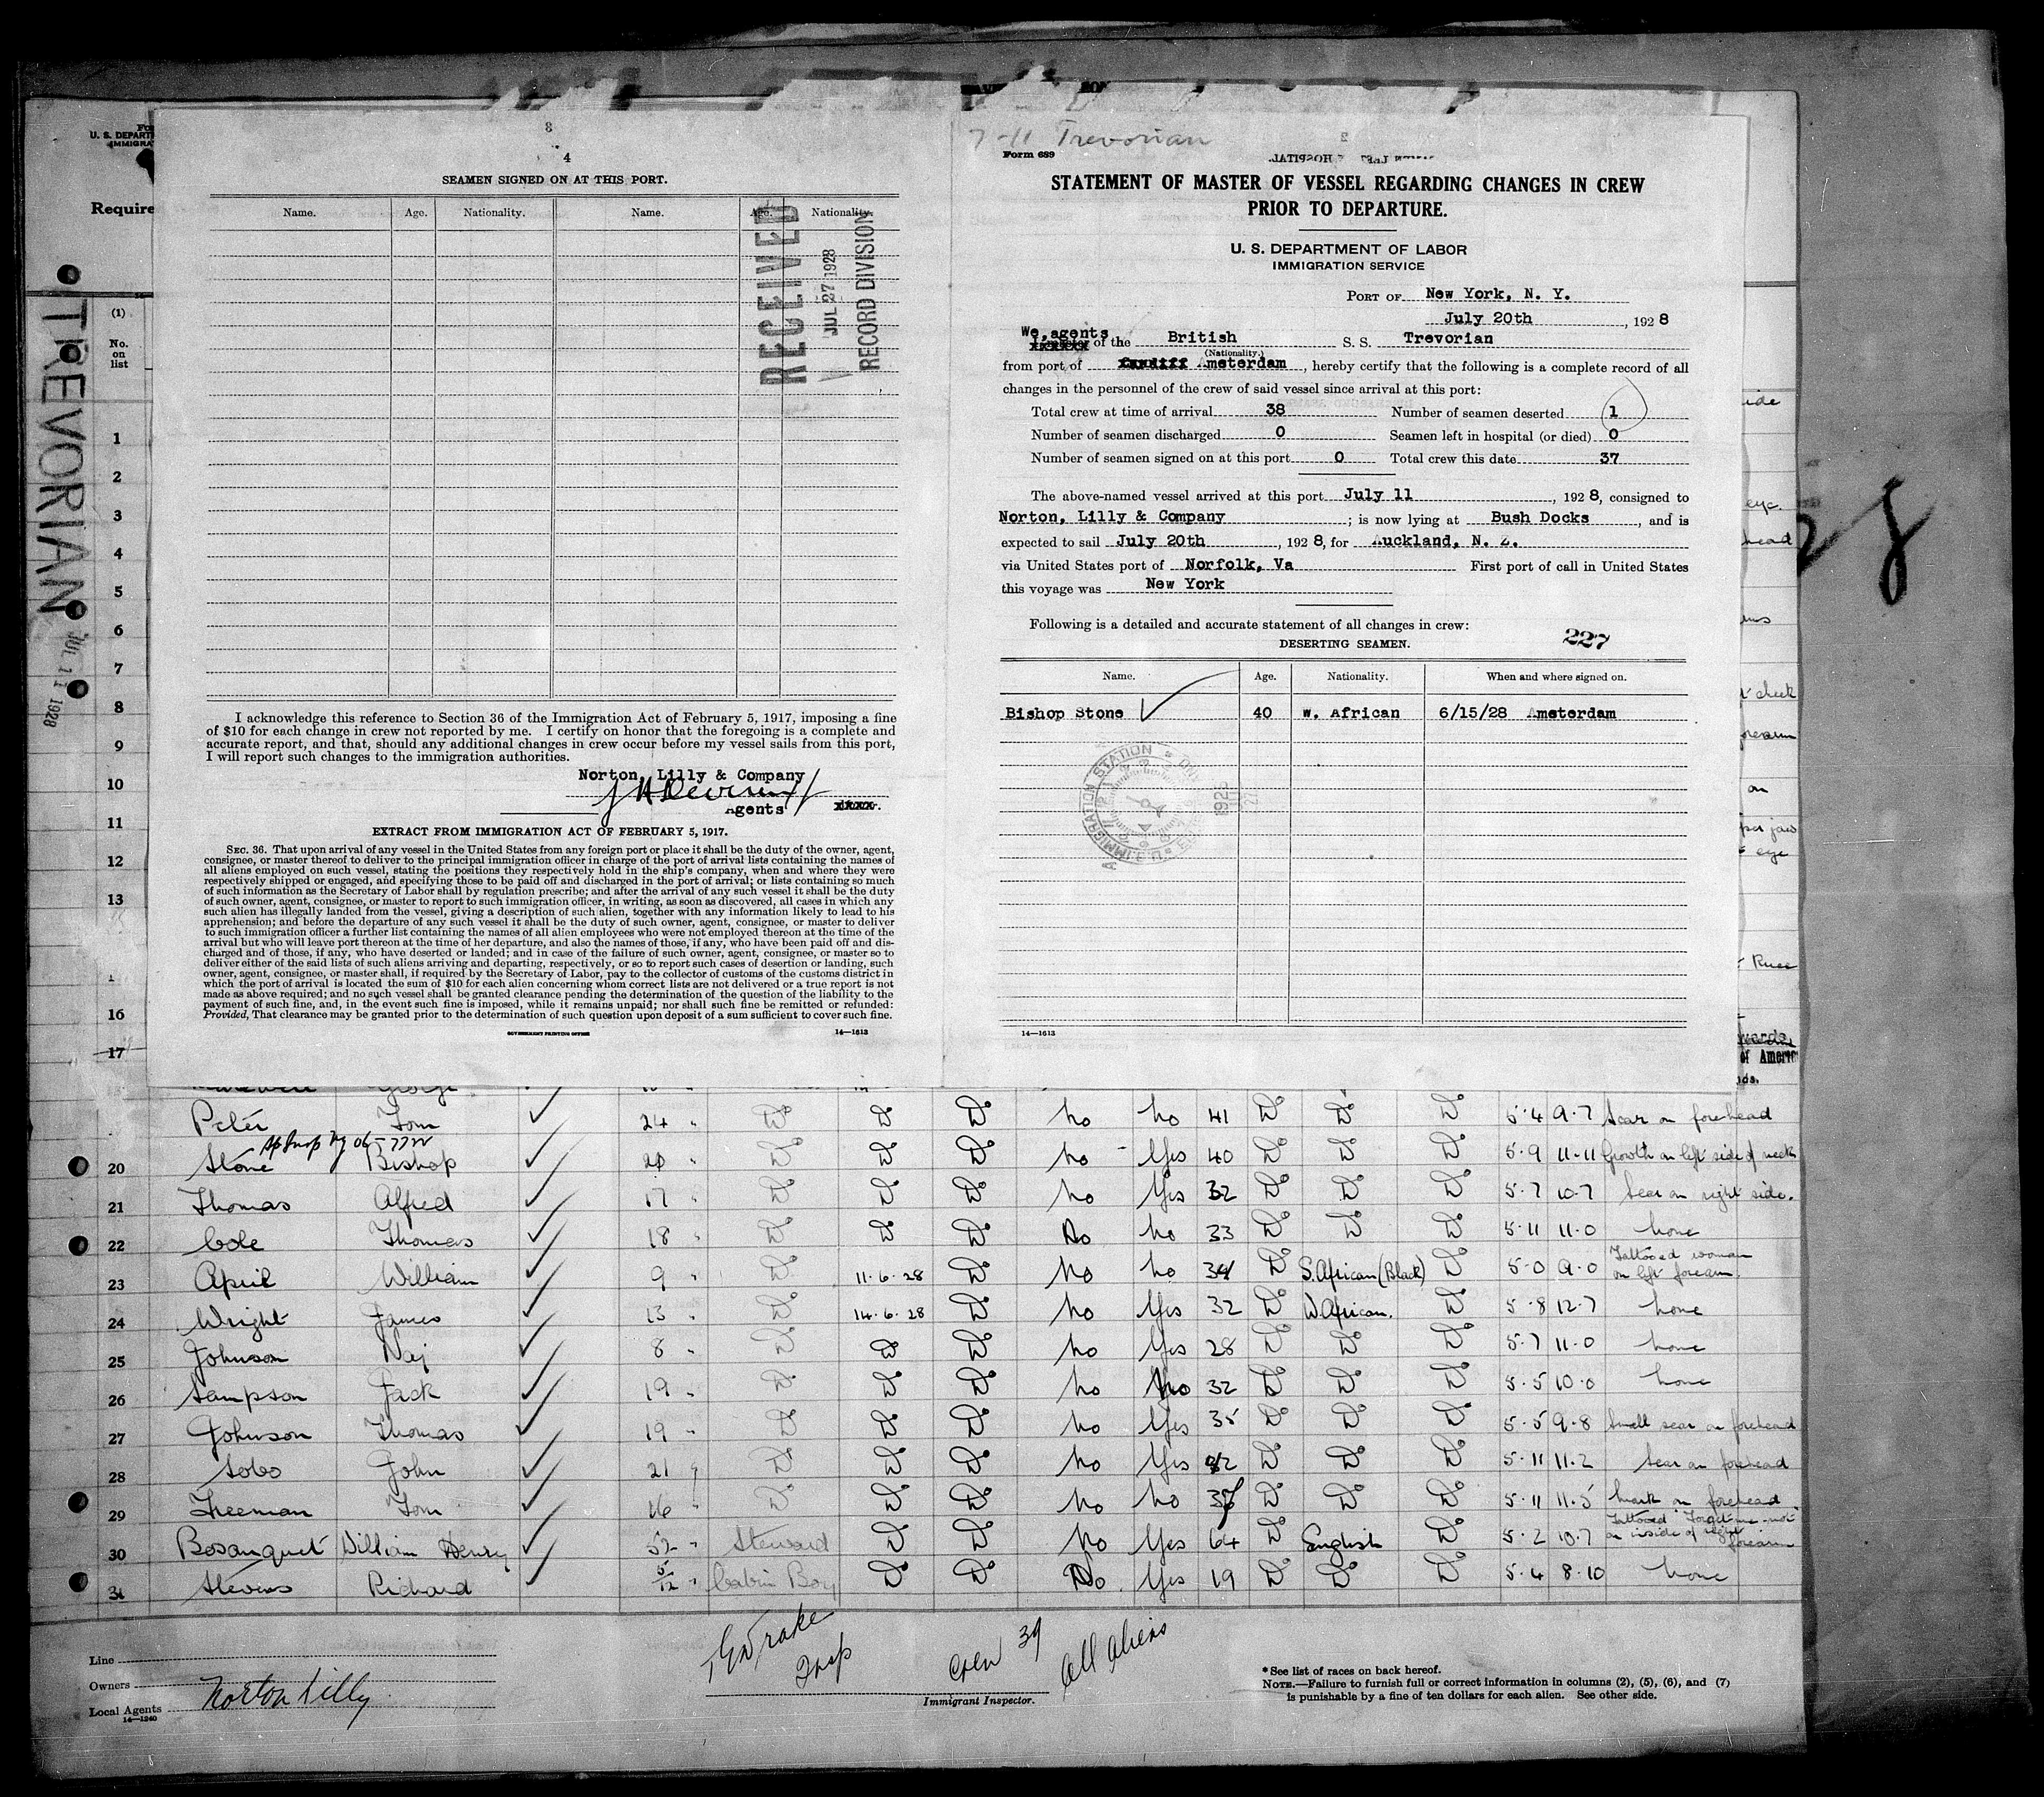 3
4
SEAMEN SIGNED ON AT THIS PORT.
Name. Age. Nationality. Name. Age. Nationality.
RECEIVED
JUL 27 1928
RECORD DIVISION
I acknowledge this reference to Section 36 of the Immigration Act of February 5, 1917, imposing a fine
of $10 for each change in crew not reported by me. I certify on honor that the foregoing is a complete and
accurate report, and that, should any additional changes in crew occur before my vessel sails from this port,
I will report such changes to the immigration authorities.
Norton, Lilly & Company
Agents
EXTRACT FROM IMMIGRATION ACT OF FEBRUARY 5, 1917.
SEC. 36. That upon arrival of any vessel in the United States from any foreign port or place it shall be the duty of the owner, agent,
consignee, or master thereof to deliver to the principal immigration officer in charge of the port of arrival lists containing the names of
all aliens employed on such vessel, stating the positions they respectively hold in the ship's company, when and where they were
respectively shipped or engaged, and specifying those to be paid off and discharged in the port of arrival; or lists containing so much
of such information as the Secretary of Labor shall by regulation prescribe; and after the arrival of any such vessel it shall be the duty
of such owner, agent, consignee, or master to report to such immigration officer, in writing, as soon as discovered, all cases in which any
such alien has illegally landed from the vessel, giving a description of such alien, together with any information likely to lead to his
apprehension; and before the departure of any such vessel it shall be the duty of such owner, agent, consignee, or master to deliver
to such immigration officer a further list containing the names of all alien employees who were not employed thereon at the time of the
arrival but who will leave port thereon at the time of her departure, and also the names of those, if any, who have been paid off and dis-
charged and of those, if any, who have deserted or landed; and in case of the failure of such owner, agent, consignee, or master so to
deliver either of the said lists of such aliens arriving and departing, respectively, or so to report such cases of desertion or landing, such
owner, agent, consignee, or master shall, if required by the Secretary of Labor, pay to the collector of customs of the customs district in
which the port of arrival is located the sum of $10 for each alien concerning whom correct lists are not delivered or a true report is not
made as above required; and no such vessel shall be granted clearance pending the determination of the question of the liability to the
payment of such fine, and, in the event such fine is imposed, while it remains unpaid; nor shall such fine be remitted or refunded:
Provided, That clearance may be granted prior to the determination of such question upon deposit of a sum sufficient to cover such fine.
GOVERNMENT PRINTING OFFICE 14—1613
7-11 Trevorian
Form 689
STATEMENT OF MASTER OF VESSEL REGARDING CHANGES IN CREW
PRIOR TO DEPARTURE.
U. S. DEPARTMENT OF LABOR
IMMIGRATION SERVICE
PORT OF New York, N. Y.
July 20th, 1928
We, agents of the British S. S. Trevorian
(Nationality.)
from port of Amsterdam, hereby certify that the following is a complete record of all
changes in the personnel of the crew of said vessel since arrival at this port:
Total crew at time of arrival 38 Number of seamen deserted 1
Number of seamen discharged 0 Seamen left in hospital (or died) 0
Number of seamen signed on at this port 0 Total crew this date 37
The above-named vessel arrived at this port July 11, 1928, consigned to
Norton, Lilly & Company; is now lying at Bush Docks, and is
expected to sail July 20th, 1928, for Auckland, N. Z.
via United States port of Norfolk, Va First port of call in United States
this voyage was New York
Following is a detailed and accurate statement of all changes in crew:
227
DESERTING SEAMEN.
Name. Age. Nationality. When and where signed on.
Bishop Stone 40 W. African 6/15/28 Amsterdam
14—1613
U. S. DEPART
IMMIGRA
Require
TREVORIAN
JUL 11 1928
(1)
No.
on
list
1
2
3
4
5
6
7
8
9
10
11
12
13
16
17
28
Peter Tom 24 " Do Do Do No No 41 Do Do Do 5·4 9·7 Scar on forehead
20 Stone Bishop " Do Do Do No Yes 40 Do Do Do 5·9 11·11 Growth on left side of neck
21 Thomas Alfred 17 " Do Do Do No Yes 32 Do Do Do 5·7 10·7 Scar on right side.
22 Cole Thomas 18 " Do Do Do No No 33 Do Do Do 5·11 11·0 None
23 April William 9 " Do 11·6·28 Do No No 34 Do S. African (Black) Do 5·0 9·0 Tattooed woman on left forearm.
24 Wright James 13 " Do 14·6·28 Do No Yes 32 Do W. African. Do 5·8 12·7 None
25 Johnson 8 " Do Do Do No Yes 28 Do Do Do 5·7 11·0 None
26 Sampson Jack 19 " Do Do Do No No 32 Do Do Do 5·5 10·0 None
27 Johnson Thomas 19 " Do Do Do No Yes 35 Do Do Do 5·5 9·8 Small scar on forehead
28 John 21 " Do Do Do No Yes Do Do Do 5·11 11·2 Scar on forehead
29 Freeman Tom 16 " Do Do Do No No Do Do Do 5·11 11·5 Mark on forehead.
30 Bosanquet William Henry 32 " Steward Do Do No Yes 64 Do English Do 5·2 10·7 Tattooed Forget-me-not on inside of right forearm
31 Stevens Richard 5/12 " Cabin Boy Do Do No. Yes 19 Do Do Do 5·4 8·10 None
Line
Owners
Local Agents Norton Lilly
14—1240
Drake
Insp
Crew 39
All Aliens
Immigrant Inspector.
* See list of races on back hereof.
NOTE.—Failure to furnish full or correct information in columns (2), (5), (6), and (7)
is punishable by a fine of ten dollars for each alien. See other side.